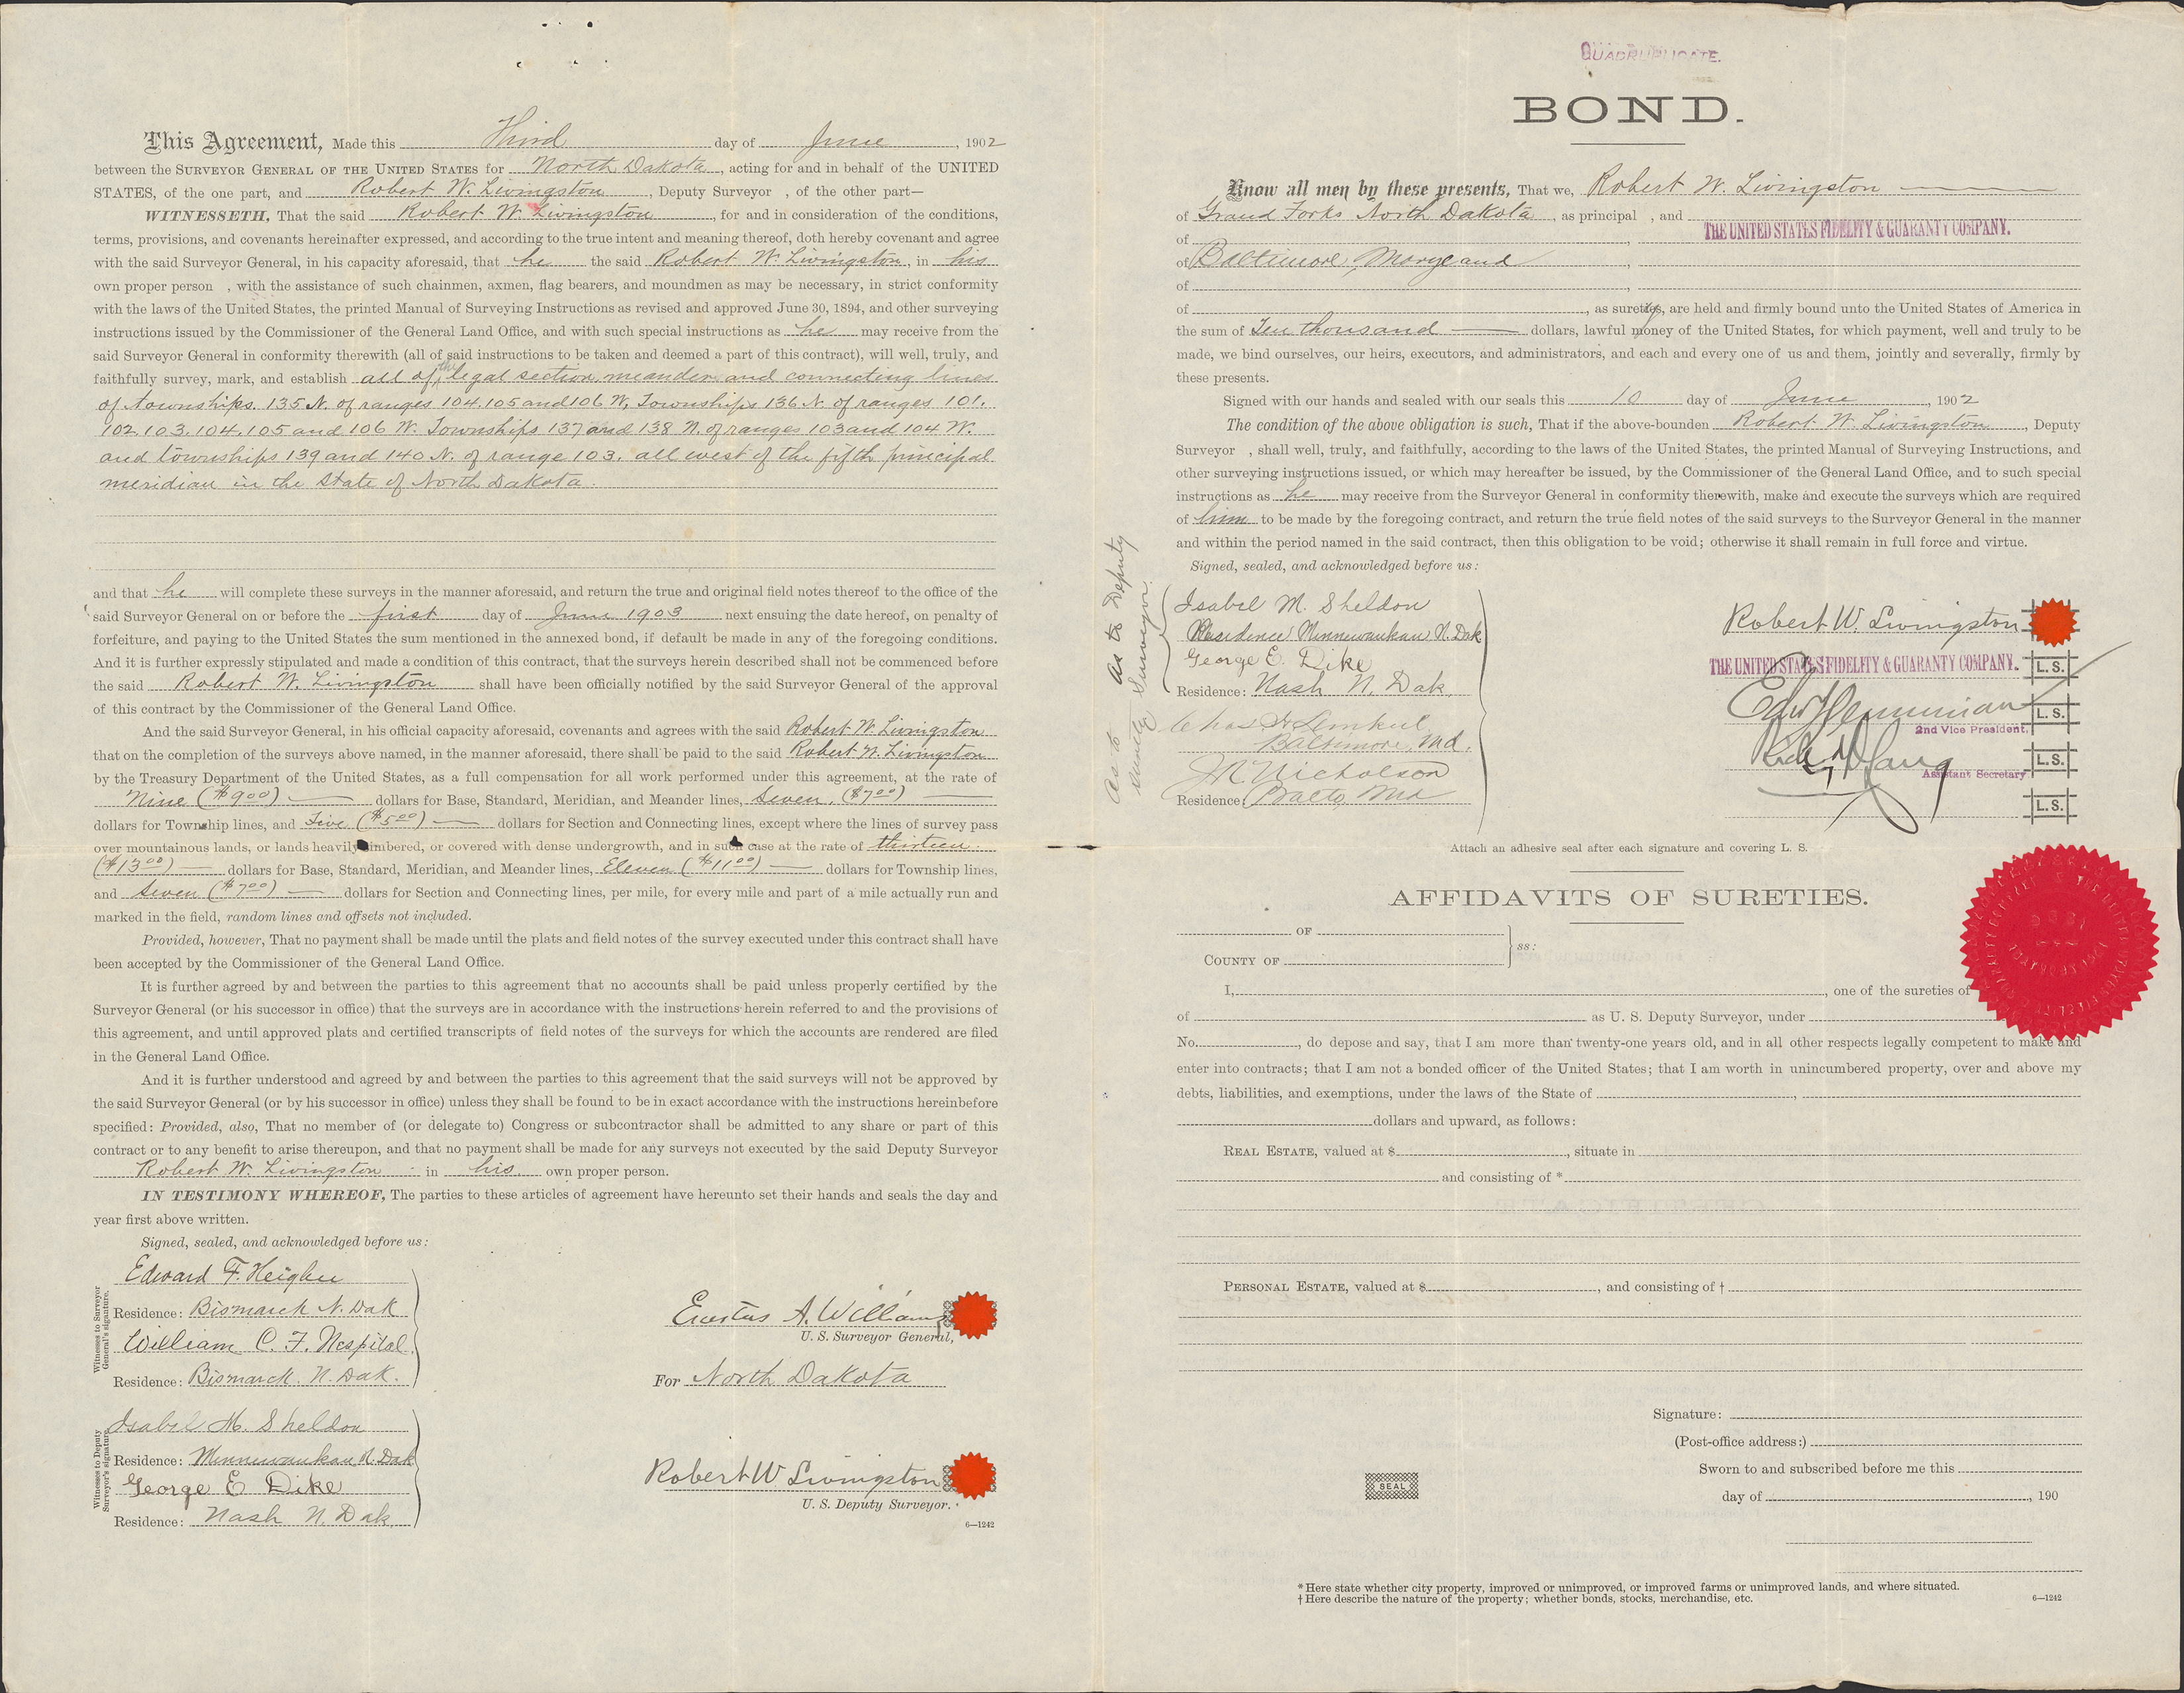 This Agreement, Made this Third day of June, 1902
between the SURVEYOR GENERAL OF THE UNITED STATES for North Dakota, acting for and in behalf of the UNITED
STATES, of the one part, and Robert W. Livingston, Deputy Surveyor , of the other part—
WITNESSETH, That the said Robert W. Livingston, for and in consideration of the conditions,
terms, provisions, and covenants hereinafter expressed, and according to the true intent and meaning thereof, doth hereby covenant and agree
with the said Surveyor General, in his capacity aforesaid, that he the said Robert W. Livingston, in his
own proper person , with the assistance of such chainmen, axmen, flag bearers, and moundmen as may be necessary, in strict conformity
with the laws of the United States, the printed Manual of Surveying Instructions as revised and approved June 30, 1894, and other surveying
instructions issued by the Commissioner of the General Land Office, and with such special instructions as he may receive from the
said Surveyor General in conformity therewith (all of said instructions to be taken and deemed a part of this contract), will well, truly, and
faithfully survey, mark, and establish all of the legal section, meander and connecting lines
of townships. 135 N. of ranges 104, 105 and 106 W, Townships 136 N. of ranges 101.
102. 103. 104. 105 and 106 W. Townships 137 and 138 N. of ranges 103 and 104 W.
and townships 139 and 140 N. of range 103, all west of the fifth principal
meridian in the State of North Dakota.
and that he will complete these surveys in the manner aforesaid, and return the true and original field notes thereof to the office of the
said Surveyor General on or before the first day of June 1903 next ensuing the date hereof, on penalty of
forfeiture, and paying to the United States the sum mentioned in the annexed bond, if default be made in any of the foregoing conditions.
And it is further expressly stipulated and made a condition of this contract, that the surveys herein described shall not be commenced before
the said Robert W. Livingston shall have been officially notified by the said Surveyor General of the approval
of this contract by the Commissioner of the General Land Office.
And the said Surveyor General, in his official capacity aforesaid, covenants and agrees with the said Robert W. Livingston
that on the completion of the surveys above named, in the manner aforesaid, there shall be paid to the said Robert W. Livingston
by the Treasury Department of the United States, as a full compensation for all work performed under this agreement, at the rate of
Nine ($9.00) dollars for Base, Standard, Meridian, and Meander lines, Seven, ($7.00)
dollars for Township lines, and Five ($5.00) dollars for Section and Connecting lines, except where the lines of survey pass
over mountainous lands, or lands heavily timbered, or covered with dense undergrowth, and in such case at the rate of thirteen
($13.00) dollars for Base, Standard, Meridian, and Meander lines, Eleven ($11.00) dollars for Township lines,
and Seven ($7.00) dollars for Section and Connecting lines, per mile, for every mile and part of a mile actually run and
marked in the field, random lines and offsets not included.
Provided, however, That no payment shall be made until the plats and field notes of the survey executed under this contract shall have
been accepted by the Commissioner of the General Land Office.
It is further agreed by and between the parties to this agreement that no accounts shall be paid unless properly certified by the
Surveyor General (or his successor in office) that the surveys are in accordance with the instructions herein referred to and the provisions of
this agreement, and until approved plats and certified transcripts of field notes of the surveys for which the accounts are rendered are filed
in the General Land Office.
And it is further understood and agreed by and between the parties to this agreement that the said surveys will not be approved by
the said Surveyor General (or by his successor in office) unless they shall be found to be in exact accordance with the instructions hereinbefore
specified: Provided, also, That no member of (or delegate to) Congress or subcontractor shall be admitted to any share or part of this
contract or to any benefit to arise thereupon, and that no payment shall be made for any surveys not executed by the said Deputy Surveyor
Robert W. Livingston in his own proper person.
IN TESTIMONY WHEREOF, The parties to these articles of agreement have hereunto set their hands and seals the day and
year first above written.
Signed, sealed, and acknowledged before us:
Witnesses to Surveyor
General's signature.
Edward F. Heigher
Residence: Bismarck N. Dak
William C. F. Nespital.
Residence: Bismarck. N. Dak.
Erastus A. Williams
U. S. Surveyor General,
For North Dakota
Witnesses to Deputy
Surveyor's signature.
Isabel M. Sheldon
Residence: Minnewaukan, N. Dak
George E. Dike
Residence: Nash N. Dak,
Robert W Livingston
U. S. Deputy Surveyor.
6—1242
QUADRUPLICATE.
BOND.
Know all men by these presents, That we, Robert W. Livingston
of Grand Forks North Dakota, as principal , and
of THE UNITED STATES FIDELITY & GUARANTY COMPANY.
of Baltimore, Maryland ,
of ,
of , as surety, are held and firmly bound unto the United States of America in
the sum of Ten thousand dollars, lawful money of the United States, for which payment, well and truly to be
made, we bind ourselves, our heirs, executors, and administrators, and each and every one of us and them, jointly and severally, firmly by
these presents.
Signed with our hands and sealed with our seals this 10 day of June, 1902
The condition of the above obligation is such, That if the above-bounden Robert W. Livingston, Deputy
Surveyor , shall well, truly, and faithfully, according to the laws of the United States, the printed Manual of Surveying Instructions, and
other surveying instructions issued, or which may hereafter be issued, by the Commissioner of the General Land Office, and to such special
instructions as he may receive from the Surveyor General in conformity therewith, make and execute the surveys which are required
of him to be made by the foregoing contract, and return the true field notes of the said surveys to the Surveyor General in the manner
and within the period named in the said contract, then this obligation to be void; otherwise it shall remain in full force and virtue.
Signed, sealed, and acknowledged before us:
As to Deputy
Surveyor.
Isabel M. Sheldon
Residence: Minnewaukan, N. Dak
George E. Dike
Residence: Nash N. Dak.
As to
Baltimore, Md.
Nicholson
Residence Balto Md
Robert W. Livingston
THE UNITED STATES FIDELITY & GUARANTY COMPANY. L. S.
L. S.
2nd Vice President,
L. S.
Assistant Secretary
L. S.
Attach an adhesive seal after each signature and covering L. S.
AFFIDAVITS OF SURETIES.
OF
COUNTY OF ss:
I, , one of the sureties of
of as U. S. Deputy Surveyor, under
No. , do depose and say, that I am more than twenty-one years old, and in all other respects legally competent to make and
enter into contracts; that I am not a bonded officer of the United States; that I am worth in unincumbered property, over and above my
debts, liabilities, and exemptions, under the laws of the State of ,
dollars and upward, as follows:
REAL ESTATE, valued at $ , situate in
and consisting of *
PERSONAL ESTATE, valued at $ , and consisting of †
Signature:
(Post-office address:)
Sworn to and subscribed before me this
day of , 190
SEAL
* Here state whether city property, improved or unimproved, or improved farms or unimproved lands, and where situated.
† Here describe the nature of the property; whether bonds, stocks, merchandise, etc.
6—1242